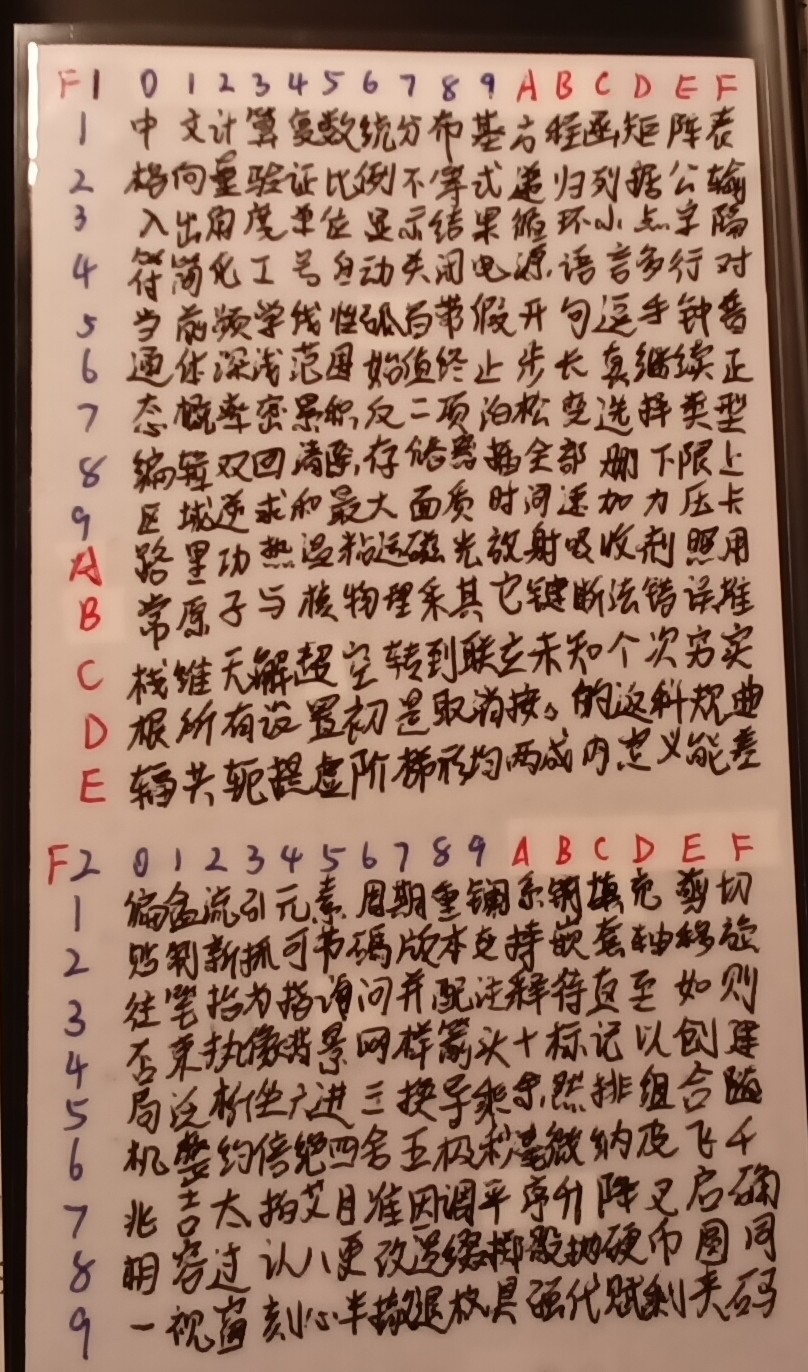 F1 0 1 2 3 4 5 6 7 8 9 A B C D E F
1 中文计算复数统分布基方程函矩阵表
2 格向量验证比例不等式递归列据公输
3 入出角度单位显示结果循环小点字隔
4 符简化工号自动关闭电源语言多行对
5 当前频学线性弧百带假开句逗手钟番
6 通体深浅范围始值终止步长真继续正
7 态概率密累积反二项泊松变选择类型
8 编辑双回清除存储器插全部删下限上
9 区域逆求和最大面质时间速加力压卡
A 路里功热温粘运磁光放射吸收剂照用
B 常原子与核物理采其它键断法错误推
C 栈维无解超空转到联立未知个次穷实
D 根所有设置初是取消按。的这科规曲
E 辐共轭提虚阶梯形均两成内定义能差
F2 0 1 2 3 4 5 6 7 8 9 A B C D E F
1 偏盒流引元素周期重镧系锕填充剪切
2 贴制新抓可节码版本支持嵌套轴移旋
3 往笔抬为指询问并配注释待直至如则
4 否束执像背景网样箭头十标记以创建
5 局泛析坐广进三换导乘余然排组合随
6 机整约倍绝四舍五极秒毫微纳皮飞千
7 兆吉太拍艾目准因调平序升降叉启确
8 明容过认八更改漫缀掷骰抛硬币圆同
9 一视窗刻心半撤退核具强代赋剩夹码